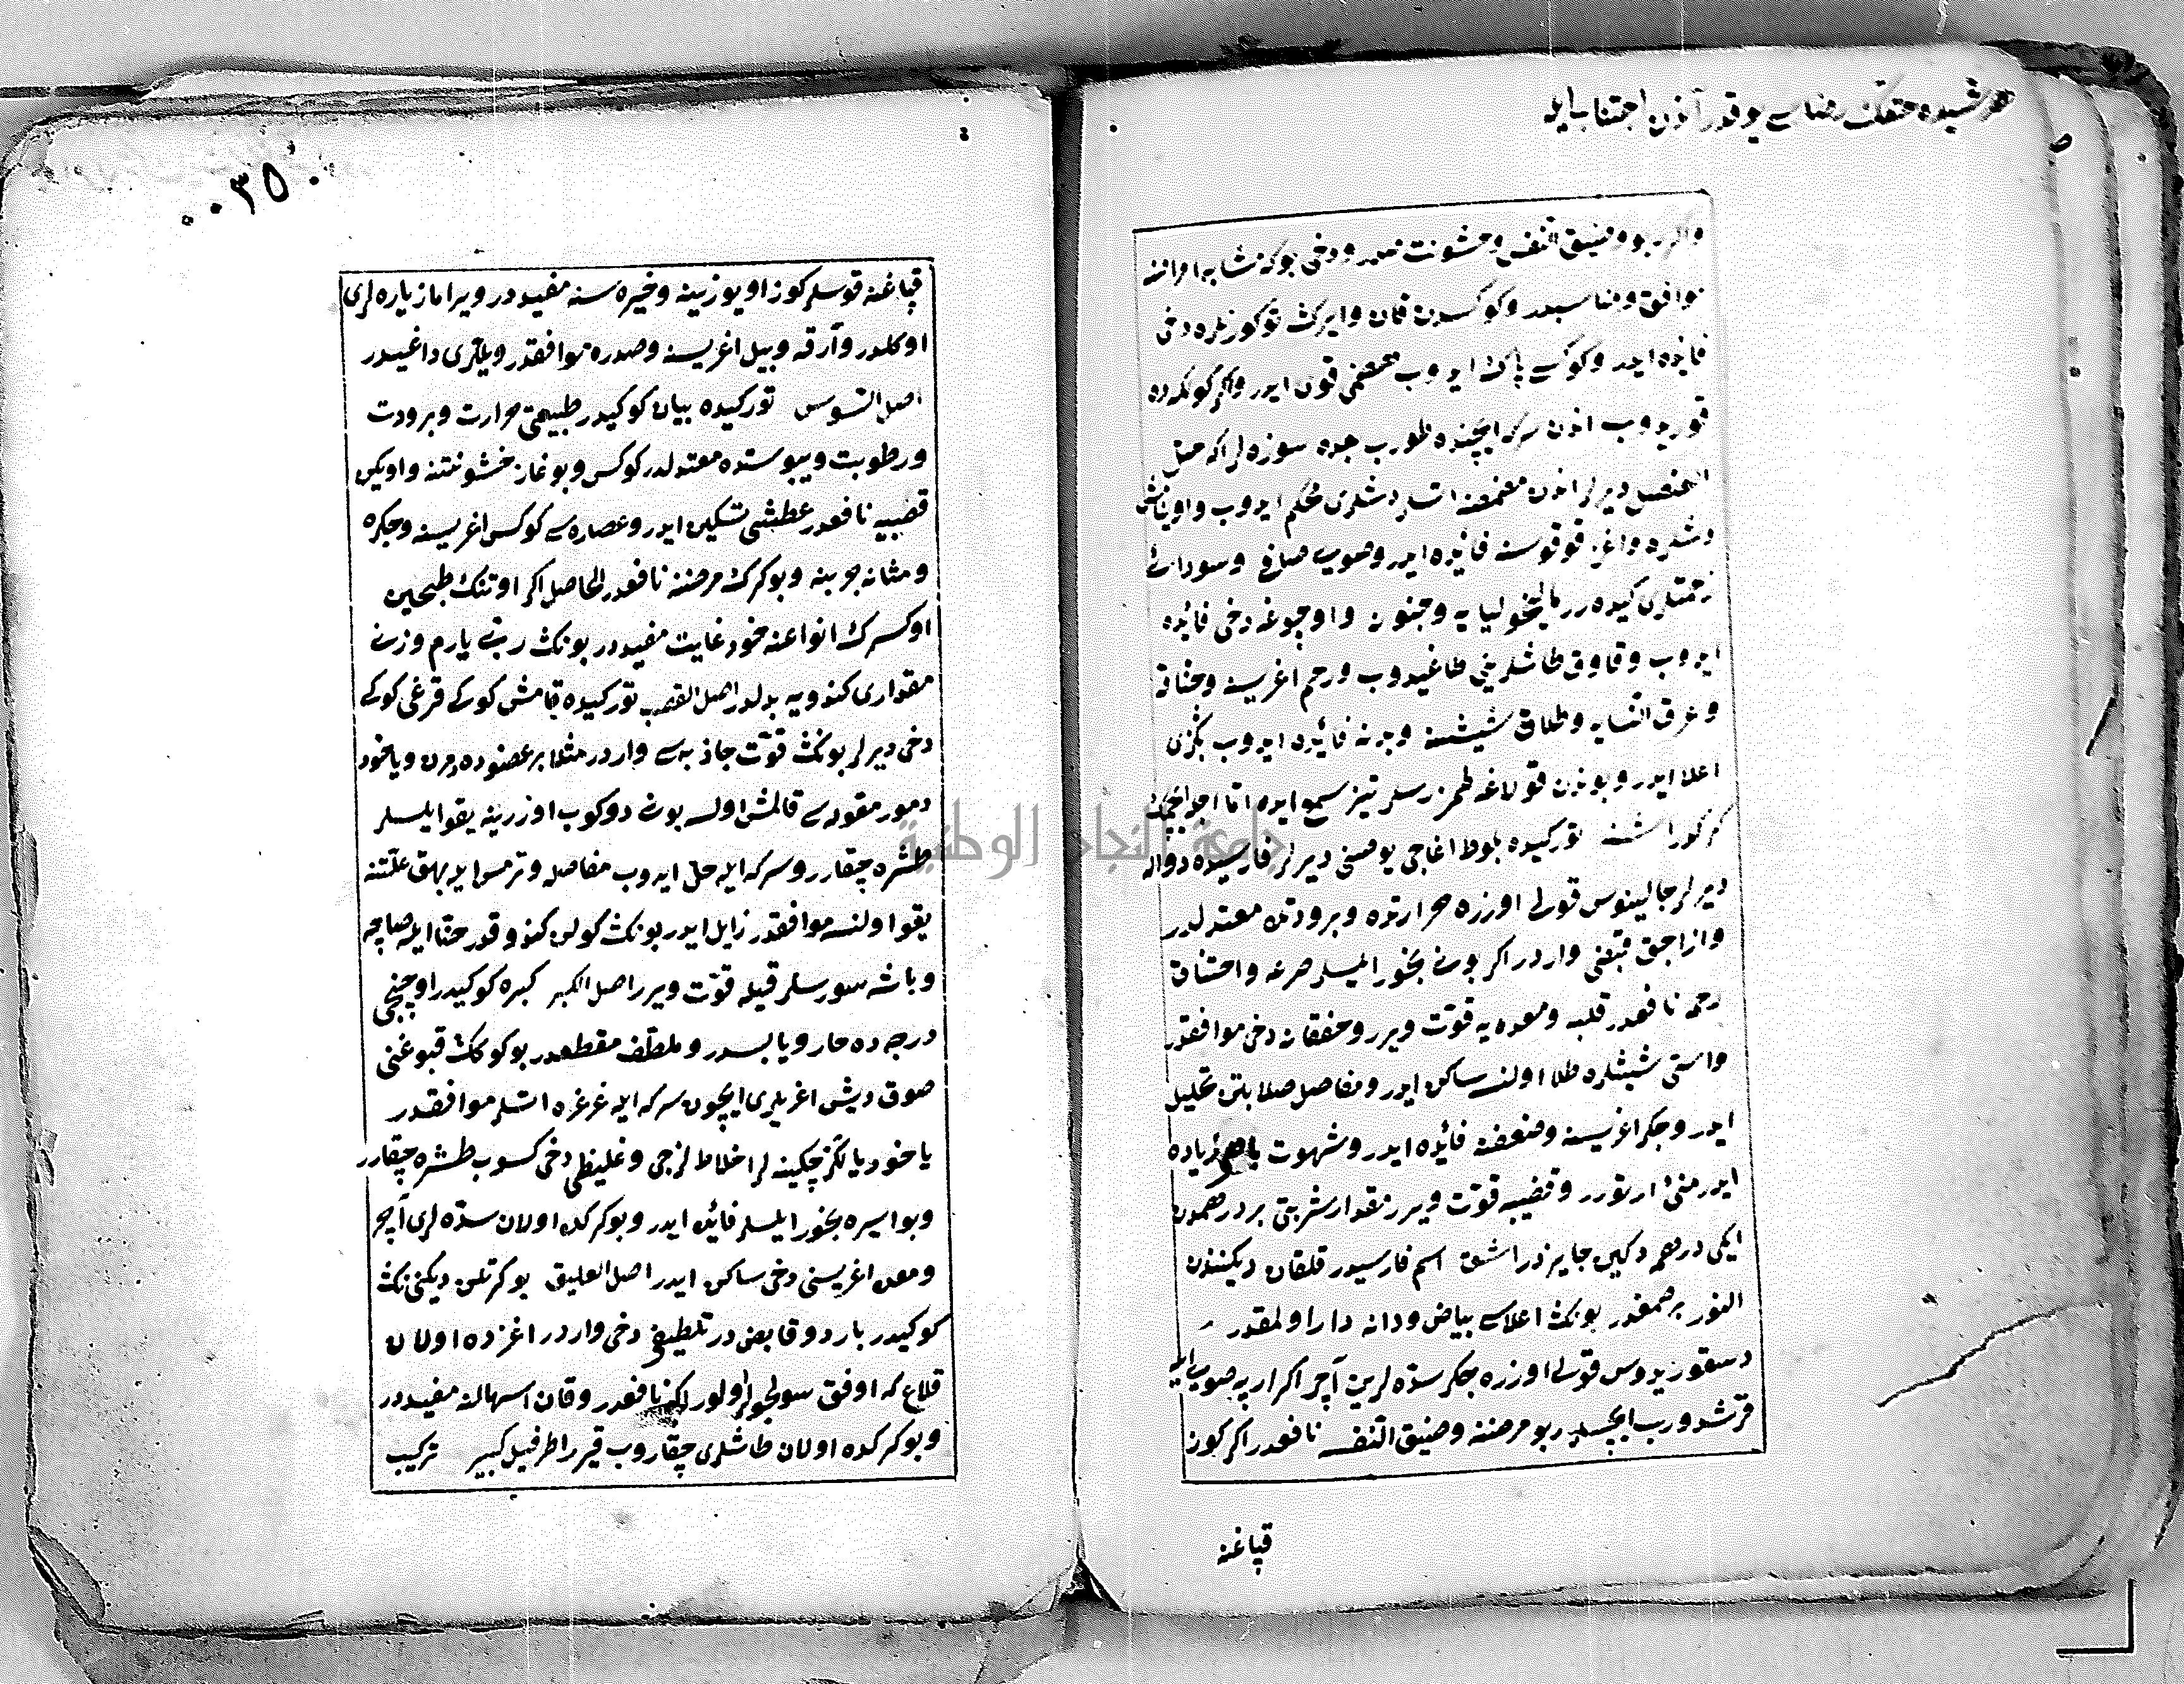 هر شیده حقك رضاسی یوقدر آندن اجتناب ایله
وربو وضیق النفس وخشونت صدر ودخی بوکه مشابه امراضه
موافق ومناسبدر وکوکسدن قان وایرك توکورنلره دخی
فائده ایدر وکوکسی پاك ایدوب هضمی قوی ایدر واکر کونکده
قوریدوب اندن سرکه ایچنده طورب جده سوزه لر اکه خل
العنصل دیرلر اندن مضمضه اتسه دشلری محکم ایدوب واویناش
دشلره واغز قوقوسنه فائده ایدر وصویی صرع وسودائی
زحمتلری کیدرر مالیخولیایه وجنون واوچوغه دخی فائده
ایدوب وقاوق طاشلرینی طاغیدوب ورحم اغریسنه وخناق
وعرق النسایه وطلاق شیشنه وبدنه فائیده ایدوب بکزی
اعلا ایدر وبوندن قولاغه طمزرسلر تیز سمع ایده اتا اجواجیمك
کرکدر اشنه تورکیده بلوط اغاجی یوصنی دیرلر فارسیده دواله
دیرلر جالینوس قولی اوزره حرارتده وبرودتده معتدلدر
وازاجق قبضی واردر اکر بونی بخور ایلسلر صرعه واختناق
رحمه نافعدر قلبه ومعده یه قوّت ویرر وخفقانه دخی موافقدر
واستی شیشلره طلا اولنسه ساکن ایدر ومفاصل صلابتن تحلیل
ایدر وجکر اغریسنه وضعفنه فائیده ایدر وشهوت باهی زیاده
ایدر منیٔ ارتورر وقضیبه قوّت ویرر مقدار شربتی بر درهمدن
ایکی درهمه دکین جایزدر اشق اسم فارسیدر قلقان دیکنندن
النور بر صمغدر بونك اعلاسی بیاض ودانه دار اولمقدر
دسقوریدوس قولی اوزره جکر سدّه لرین آچر اکر ارپه صویی ایله
قرشدورب ایچسلر ربو مرضنه وضیق النفسه نافعدر اکر کوز
قپاغنه
۰۰۳۵۰
قپاغنه قوسلر کوز اویوزینه وخیره سنه مفیددر ویراماز یاره لری
اوکلدر وآرقه وبیل اغریسنه وصدره موافقدر ویللری داغیدر
اصل السوس تورکیده بیان کوکیدر طبیعتی حرارت وبرودت
ورطوبت ویبوستده معتدلدر کوکس وبوغاز خشونتنه واویکن
قضبیه نافعدر عطشی تسکین ایدر وعصاره سی کوکس اغریسنه وجکره
ومثانه جربنه وبوکرك مرضنه نافعدر الحاصل اکر اوتنك طبیخین
اوکسرك انواعنه خود غایت مفیددر بونك ربّی یارم وزنی
مقداری کندویه بدلدر اصل القصب تورکیده قامش کوکی قرغی کوکی
دخی دیرلر بونك قوّت جاذبه سی واردر مثلا بر عضوده دمرن ویاخود
دمور مقوله سی قالمش اولسه بونی دوکوب اوزرینه یقو ایلسلر
طشره چقارر وسرکه ایله حل ایدوب مفاصله وترمس ایله بهق علّتنه
یقو اولنسه موافقدر زایل ایدر بونك کولن کندو قدر حنّا ایله صاچه
وباشه سورسلر قیله قوّت ویرر اصل الکبر کبره کوکیدر اوچنجی
درجه ده حار ویابسدر وملطّف مقطعدر بو کوکك قبوغنی
صوق دیش اغریلری ایچون سرکه ایله غرغره اتسلر موافقدر
یاخود یالکز چکینه لر اخلاط لزجی وغلیظی دخی کسوب طشره چقارر
وبواسیره بخور ایلسلر فائده ایدر وبوکرکده اولان سدّه لری آچر
ومعده اغریسنی دخی ساکن ایدر اصل العلیق بوکرتلن دیکنی نك
کوکیدر بارد وقابضدر تلطیفی دخی واردر اغزده اولان
قلاع که اوفق سولجولر اولور اکا نافعدر وقان اسهالنه مفیددر
وبوکرکده اولان طاشلری چقاروب قیرر اطرفیل کبیر ترکیب